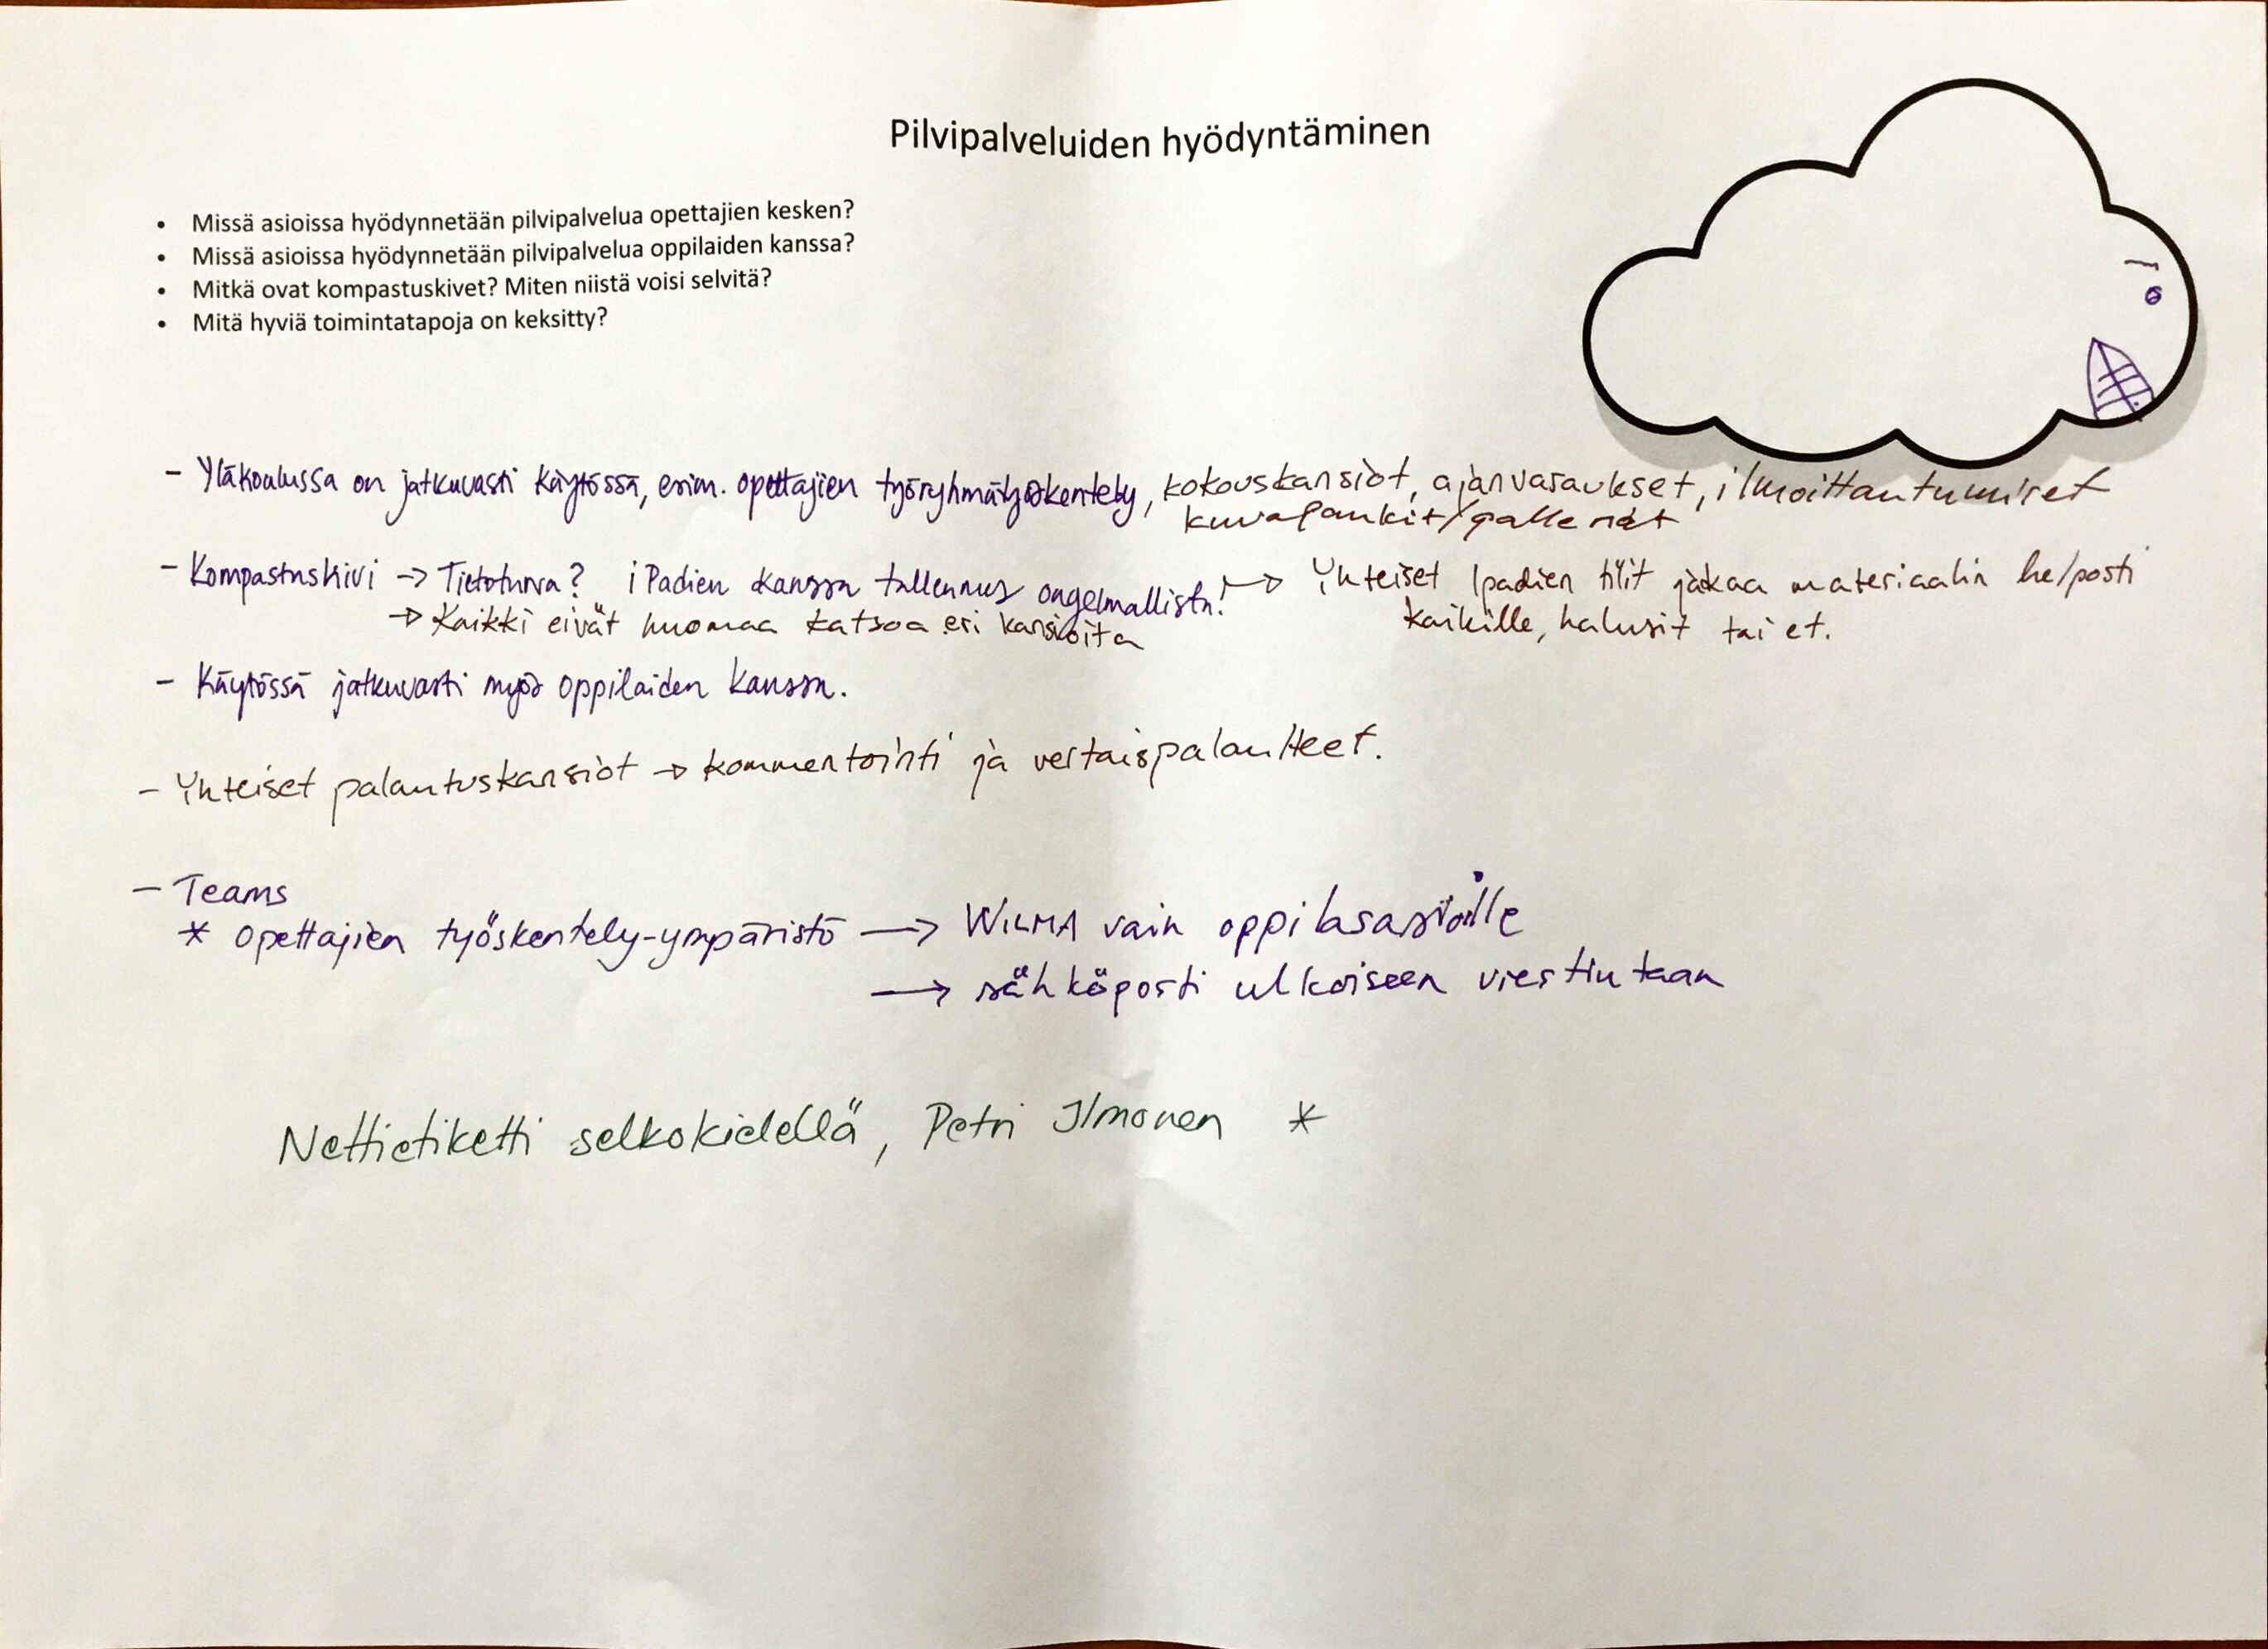 Pilvipalveluiden hyödyntäminen
• Missä asioissa hyödynnetään pilvipalvelua opettajien kesken?
• Missä asioissa hyödynnetään pilvipalvelua oppilaiden kanssa?
• Mitkä ovat kompastuskivet? Miten niistä voisi selvitä?
• Mitä hyviä toimintatapoja on keksitty?
- Yläkoulussa on jatkuvasti käytössä, esim. opettajien työryhmätyöskentely, kokouskansiot, ajanvaraukset, ilmoittautumiset
kuvapankit/galleriat
- Kompastuskivi → Tietoturva? iPadien kanssa tallennus ongelmallista! → Yhteiset Ipadien tilit jakaa materiaalin helposti
kaikille, halusit tai et.
→ Kaikki eivät huomaa katsoa eri kansioita
- Käytössä jatkuvasti myös oppilaiden kanssa.
- Yhteiset palautuskansiot → kommentointi ja vertaispalautteet.
- Teams
* opettajien työskentely-ympäristö → WILMA vain oppilasasioille
→ sähköposti ulkoiseen viestintään
Nettietiketti selkokielellä, Petri Ilmonen *